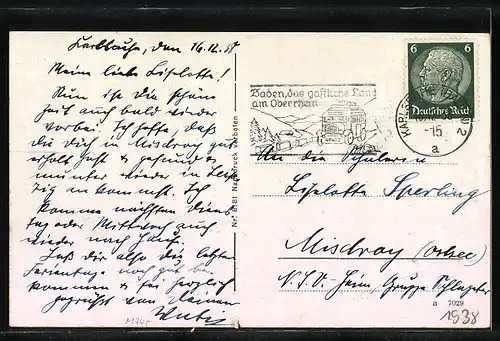 Karlsruhe, den 16.12.38
Meine liebe Liselotte!
Nun ist die schöne
Zeit auch bald wieder
vorbei. Ich hoffe, daß
du Dich in Misdroy gut
erholt hast & gesund &
munter wieder in Leip-
zig an kommst. Ich
komme nächsten Diens-
tag oder Mittwoch auch
wieder nach Haus.
Laß dir also die letzten
Ferientage noch gut be-
kommen & sei herzlich
gegrüßt von Deinem
Nr. 8181 Nachdruck verboten
Baden, das gastliche Land
am Oberrhein
6 6
Deutsches Reich
KARLSRUHE
-15
a
2
An die Schülerin
Liselotte Sperling
Misdroy (Ostsee)
N.S.V. Heim, Gruppe Schlageter
a 7029
1938